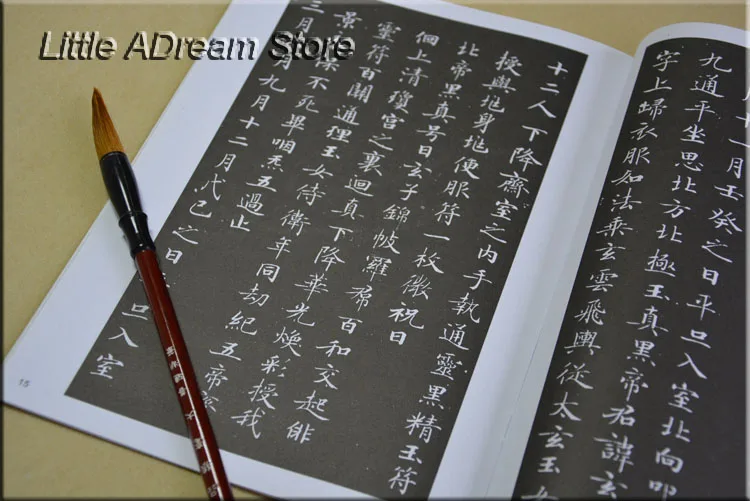 月十一月壬癸之日平旦入室北向叩
九通平坐思北方北極玉真黑帝君諱玄
字上歸衣服如法乘玄雲飛輿從太玄玉女
十二人下降齋室之內手執通靈黑精玉符
授與兆身兆便服符一枚微祝曰
北帝黑真号曰玄子錦帔羅裙百和交起俳
佪上清瓊宮之裏迴真下降華光煥彩授我
靈符百關通理玉女侍衛年同劫紀五帝齊
景保不死畢咽炁五過止
三月月九月十二月戊己之日旦入室
15
Little ADream Store